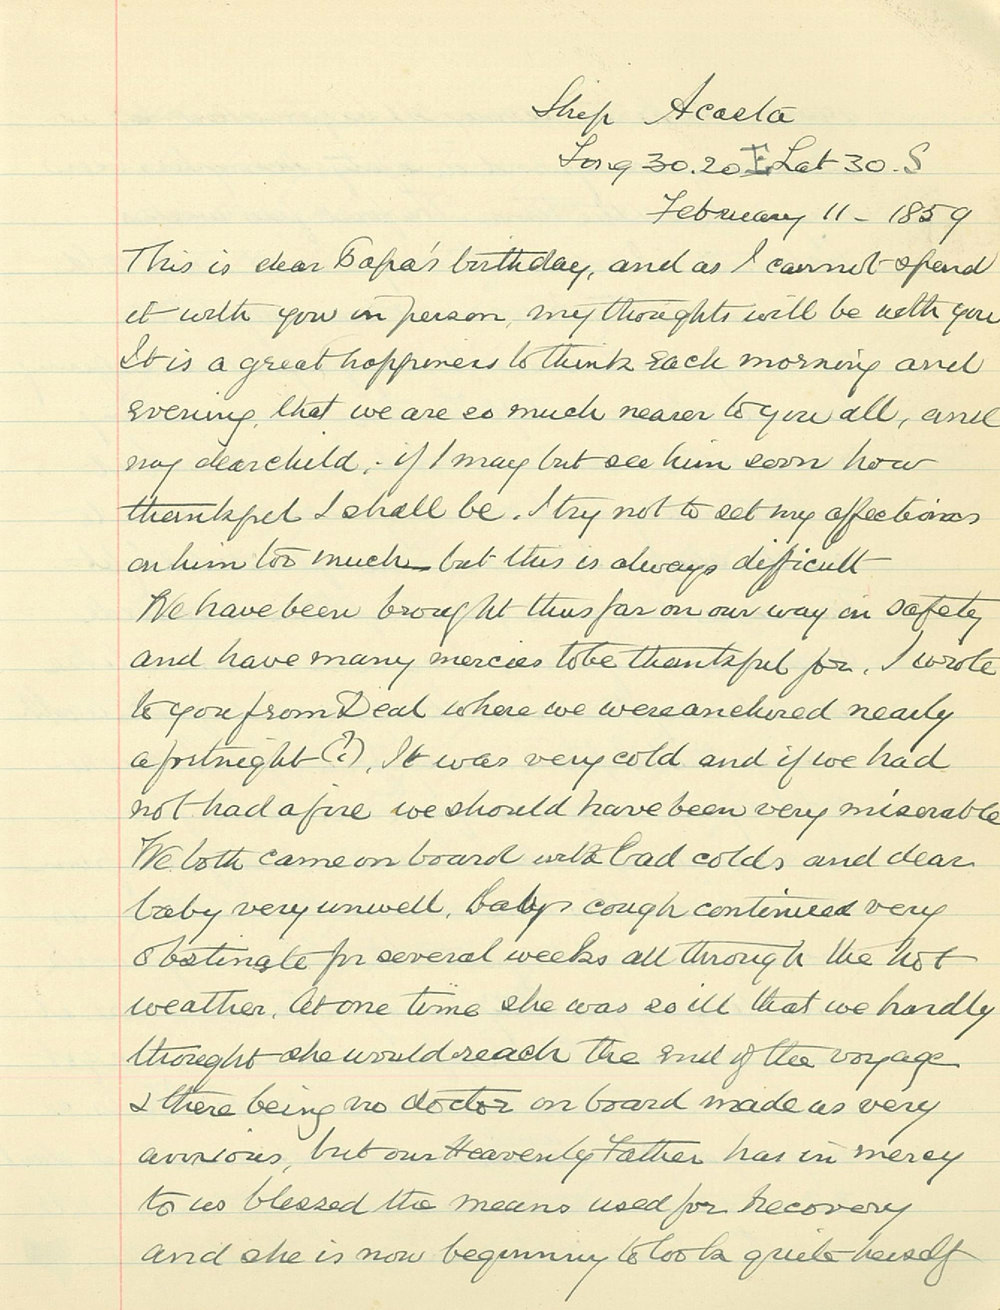 Ship Acasta
Long 30.20 E Lat 30. S
February 11 - 1859
This is dear Papa's birthday, and as I cannot spend
it with you in person, my thoughts will be with you
It is a great happiness to think each morning and
evening, that we are so much nearer to you all, and
my dear child, - if I may but see him soon how
thankful I shall be. I try not to set my affections
on him too much - but this is always difficult
We have been brought thus far on our way in safety
and have many mercies to be thankful for. I wrote
to you from Deal where we were anchored nearly
a fortnight (?). It was very cold and if we had
not had a fire we should have been very miserable
We both came on board with bad colds and dear
baby very unwell. Babys cough continued very
obstinate for several weeks all through the hot
weather. At one time she was so ill that we hardly
thought she would reach the end of the voyage
& there being no doctor on board made us very
anxious, but our Heavenly Father has in mercy
to us blessed the means used for recovery
and she is now beginning to look quite herself